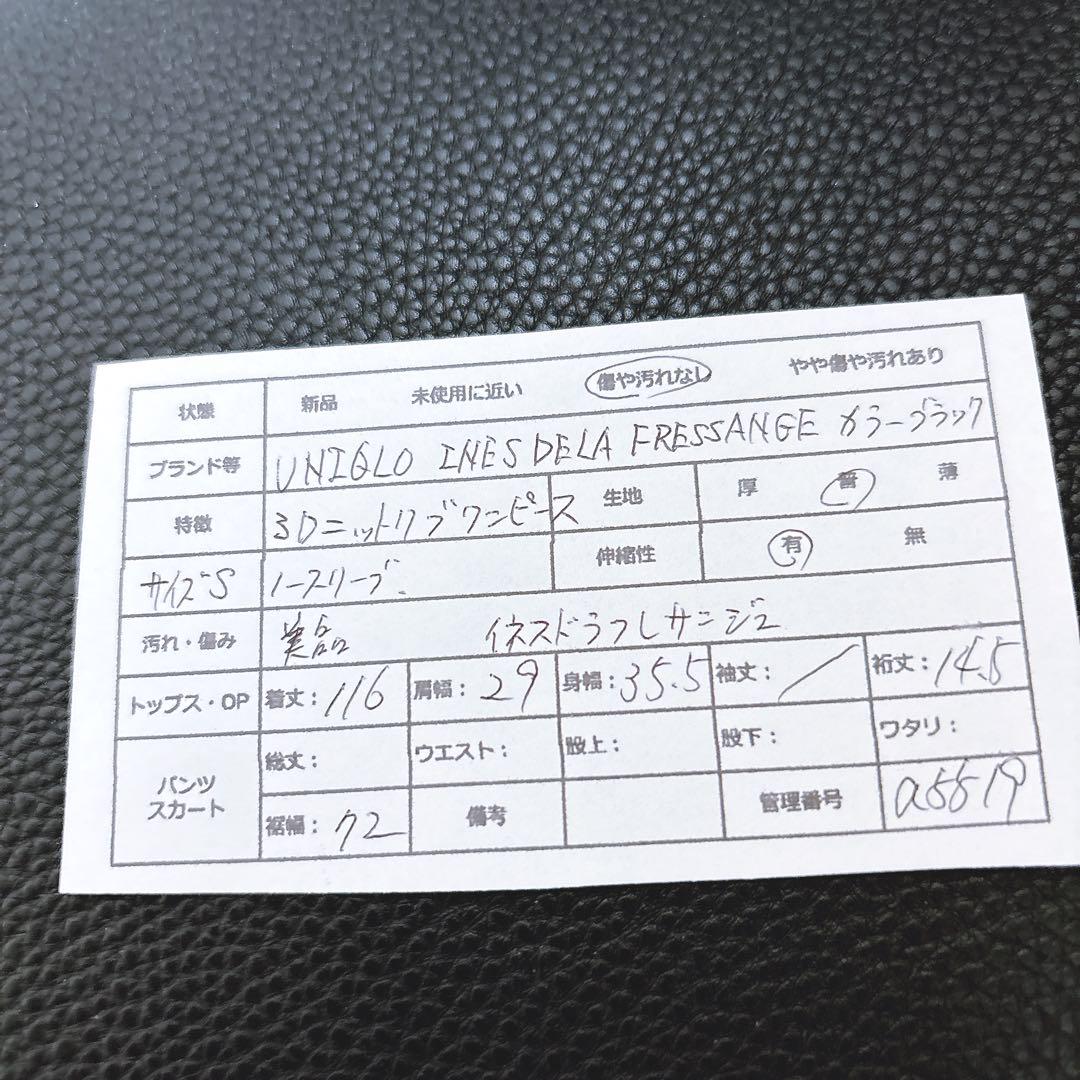 状態 新品 未使用に近い 傷や汚れなし やや傷や汚れあり
ブランド等 UNIQLO INES DELA FRESSANGE カラーブラック
特徴 3Dニットリブワンピース 生地 厚 普 薄
サイズS ノースリーブ 伸縮性 有 無
汚れ・傷み 美品 イネスドラフレサンジュ
トップス・OP 着丈:116 肩幅:29 身幅:35.5 袖丈:／ 裄丈:14.5
パンツ スカート 総丈: ウエスト: 股上: 股下: ワタリ:
裾幅:72 備考 管理番号 a5519